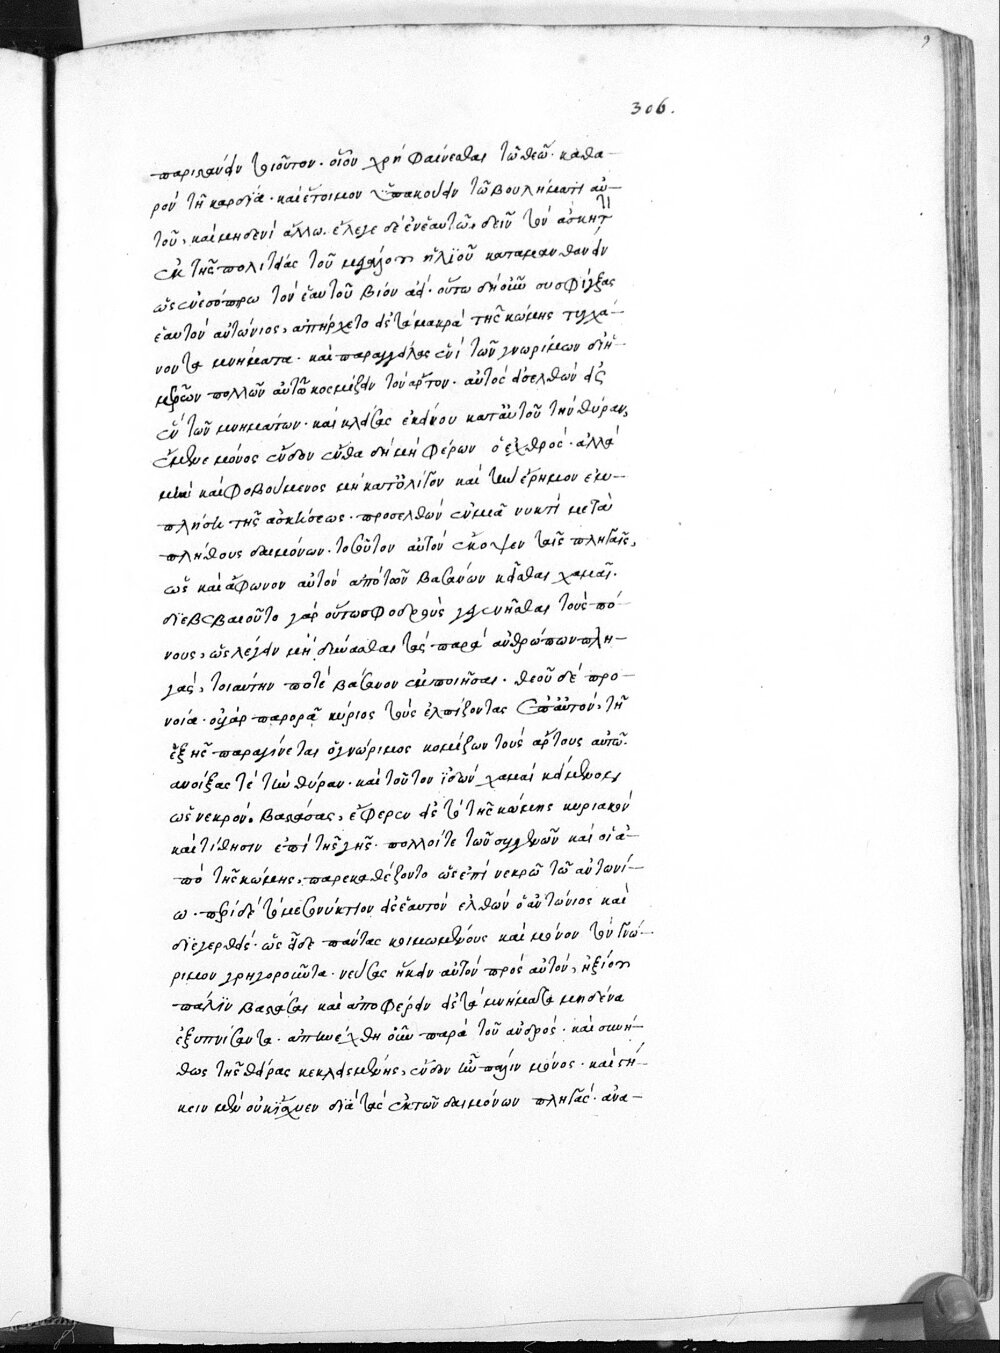 306.
παριστάνειν τοιοῦτον· οἷον χρή φαίνεσθαι τῶ θεῶ· καθα-
ρόν τῆ καρδία· καί ἕτοιμον ὑπακούειν τῶ βουλήματι αὐ-
τοῦ, καί μηδενί ἄλλω. ἔλεγε δέ ἐν ἑαυτῶ, δεῖν τόν ἀσκητήν
ἐκ τῆς πολιτείας τοῦ μεγάλου ἠλϊοῦ καταμανθάνειν
ὡς ἐν ἐσόπτρω τόν ἑαυτοῦ βίον ἀεί. οὕτω δή οὖν συσφίγξας
ἑαυτόν ἀντώνιος, ἀπήρχετο εἰς τά μακρά τῆς κώμης τυγχά-
νοντα μνήματα· καί παραγγείλας ἑνί τῶν γνωρίμων δι' ἡ-
μερῶν πολλῶν αὐτῶ κομίζειν τόν ἄρτον· αὐτός εἰσελθών εἰς
ἕν τῶν μνημάτων· καί κλείσας ἐκείνου κατ' αὐτοῦ τήν θύραν,
ἔμενε μόνος ἔνδον ἔνθα δή μή φέρων ὁ ἐχθρός· ἀλλά
μήν καί φοβούμενος μή κατ' ὀλίγον καί τήν ἔρημον ἐμ-
πλήση τῆς ἀσκήσεως· προσελθών ἐν μιᾶ νυκτί μετά
πλήθους δαιμόνων· τοσοῦτον αὐτόν ἔκοψεν ταῖς πληγαῖς,
ὡς καί ἄφωνον αὐτόν ἀπό τῶν βασάνων κεῖσθαι χαμαί.
διεβεβαιοῦτο γάρ οὕτω σφοδρούς γεγενῆσθαι τούς πό-
νους, ὡς λέγειν μή δύνασθαι τάς παρά ἀνθρώπων πλη-
γάς, τοιαύτην ποτέ βάσανον ἐμποιῆσαι· θεοῦ δέ προ-
νοία· οὐ γάρ παρορᾶ κύριος τούς ἐλπίζοντας ἐπ' αὐτόν, τῆ
ἑξῆς παραγίνεται ὁ γνώριμος κομίζων τούς ἄρτους αὐτῶ.
ἀνοίξας τέ τήν θύραν· καί τοῦτον ἰδών χαμαί κείμενον
ὡς νεκρόν. βαστάσας, ἔφερεν εἰς τό τῆς κώμης κυριακόν
καί τίθησιν ἐπί τῆς γῆς· πολλοί τε τῶν συγγενῶν καί οἱ ἀ-
πό τῆς κώμης, παρεκαθέζοντο ὡς ἐπί νεκρῶ τῶ ἀντωνί-
ω· περί δέ τό μεσονύκτιον εἰς ἑαυτόν ἐλθών ὁ ἀντώνιος καί
διεγερθείς· ὡς εἶδε πάντας κοιμωμένους καί μόνον τόν γνώ-
ριμον γρηγοροῦντα· νεύσας ἥκειν αὐτόν πρός αὐτόν, ἠξίου
πάλϊν βαστάσαι καί ἀποφέρειν εἰς τά μνήματα μηδένα
ἐξυπνίσαντα· ἀπηνέχθη οὖν παρά τοῦ ἀνδρός· καί συνή-
θως τῆς θύρας κεκλεισμένης, ἔνδον ἦν πάλιν μόνος· καί στή-
κειν μέν οὐκ ἴσχυεν διά τάς ἐκ τῶν δαιμόνων πληγάς· ἀνα-